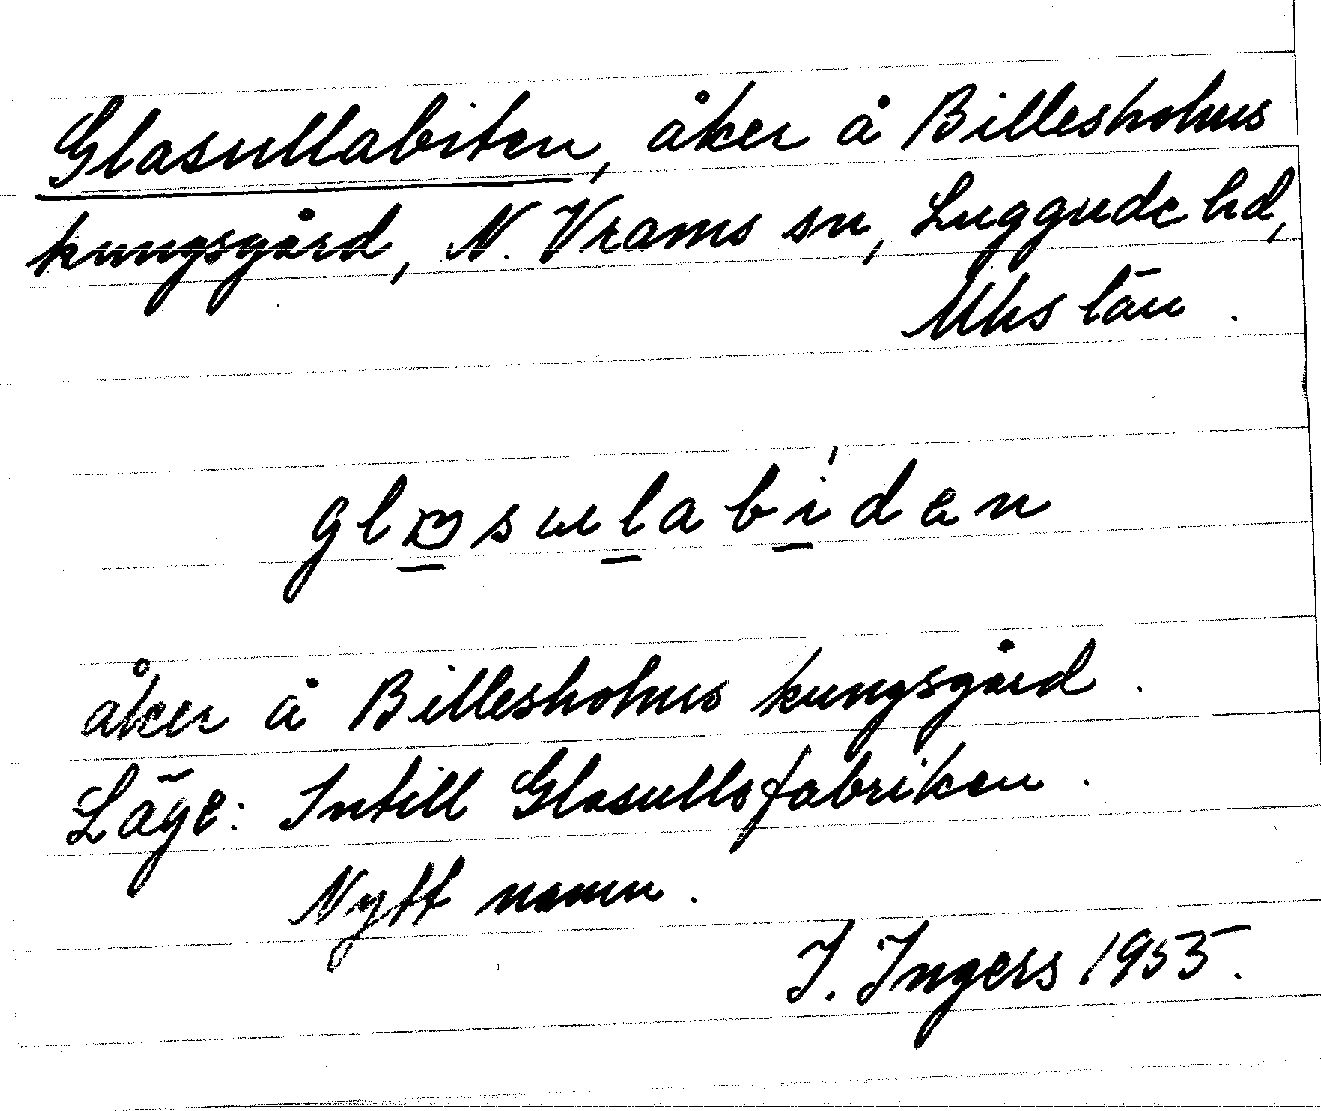 Glasullabiten, åker å Billesholms
kungsgård, N. Vrams sn, Luggude hd,
Mhs län.
åker å Billesholms kungsgård.
Läge: Intill Glasullsfabriken.
Nytt namn.
I. Ingers 1955.